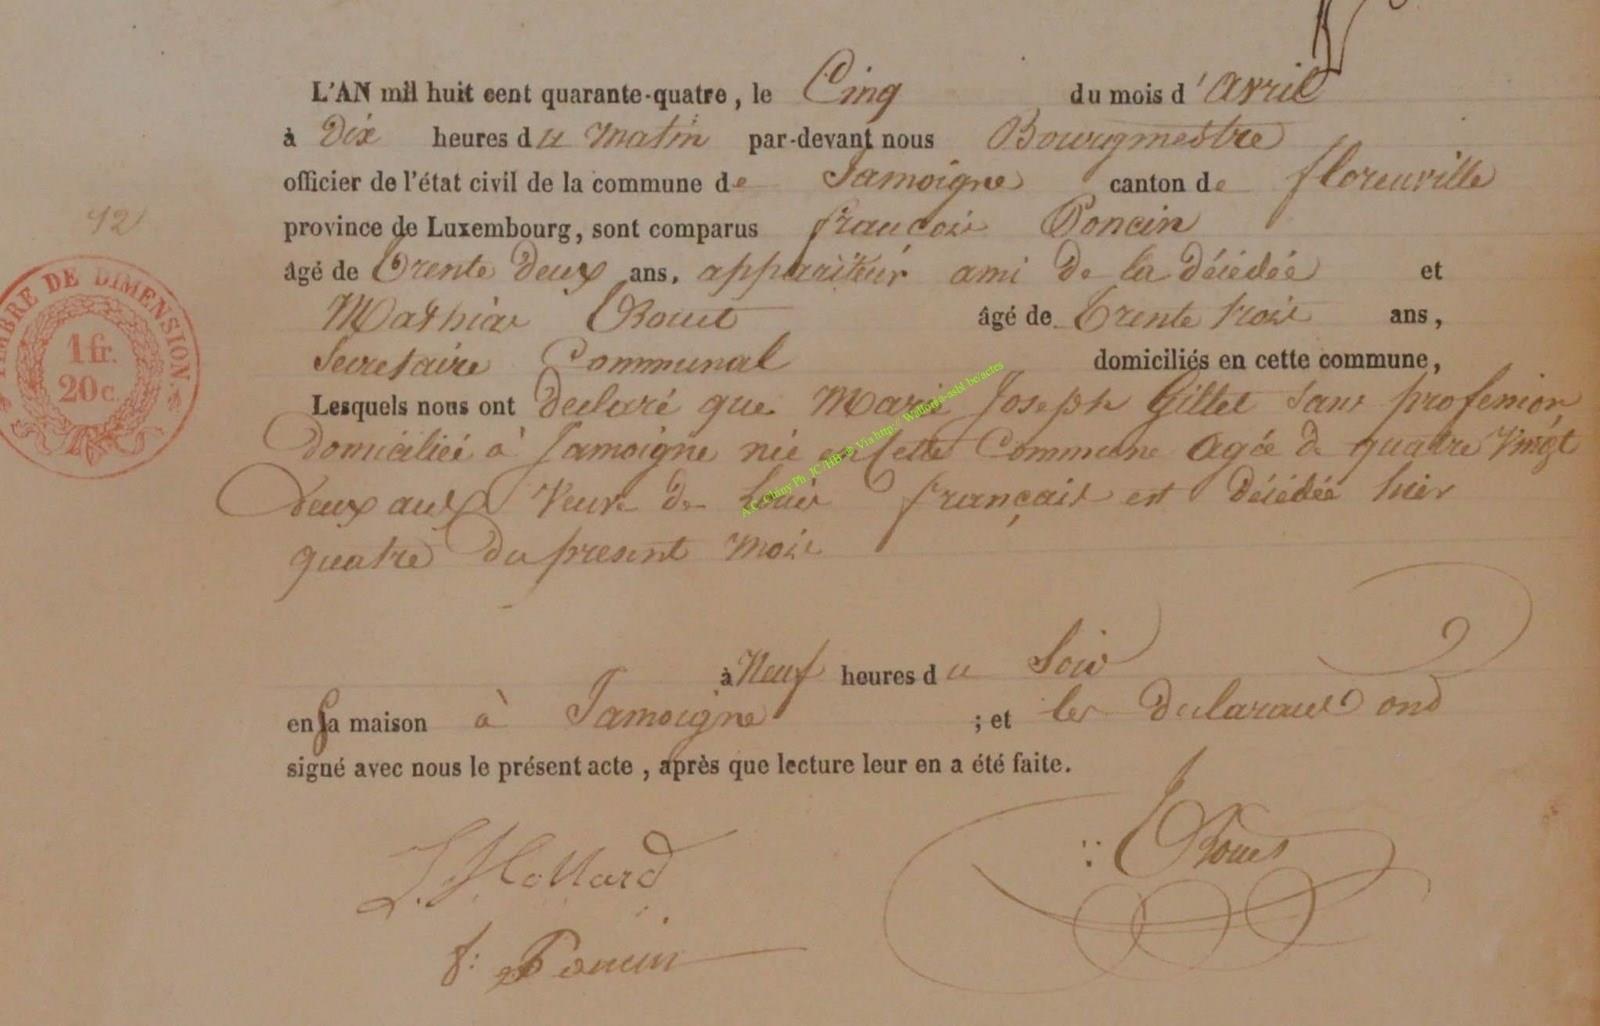 L'AN mil huit cent quarante-quatre, le Cinq du mois d'avril
à Dix heures du Matin par-devant nous Bourgmestre
officier de l'état civil de la commune de Jamoigne canton de florenville
province de Luxembourg, sont comparus francois Poncin
âgé de Trente deux ans, appariteur ami de la décédée et
Mathias âgé de Trente trois ans,
Secretaire Communal domiciliés en cette commune,
Lesquels nous ont declaré que Marie Joseph Gillet Sans profession
Domiciliée à Jamoigne née en Cette Commune agée de quatre Vingt
deux ans Veuve de Louis français est décédée hier
quatre du present mois
à Neuf heures du Soir
en sa maison à Jamoigne ; et les declarans ond
signé avec nous le présent acte, après que lecture leur en a été faite.
f: Poncin
42
TIMBRE DE DIMENSION.
1 fr.
20 c.
A.C. Chiny Ph JC/HB @ Via http:// Wallonia-asbl.be/actes